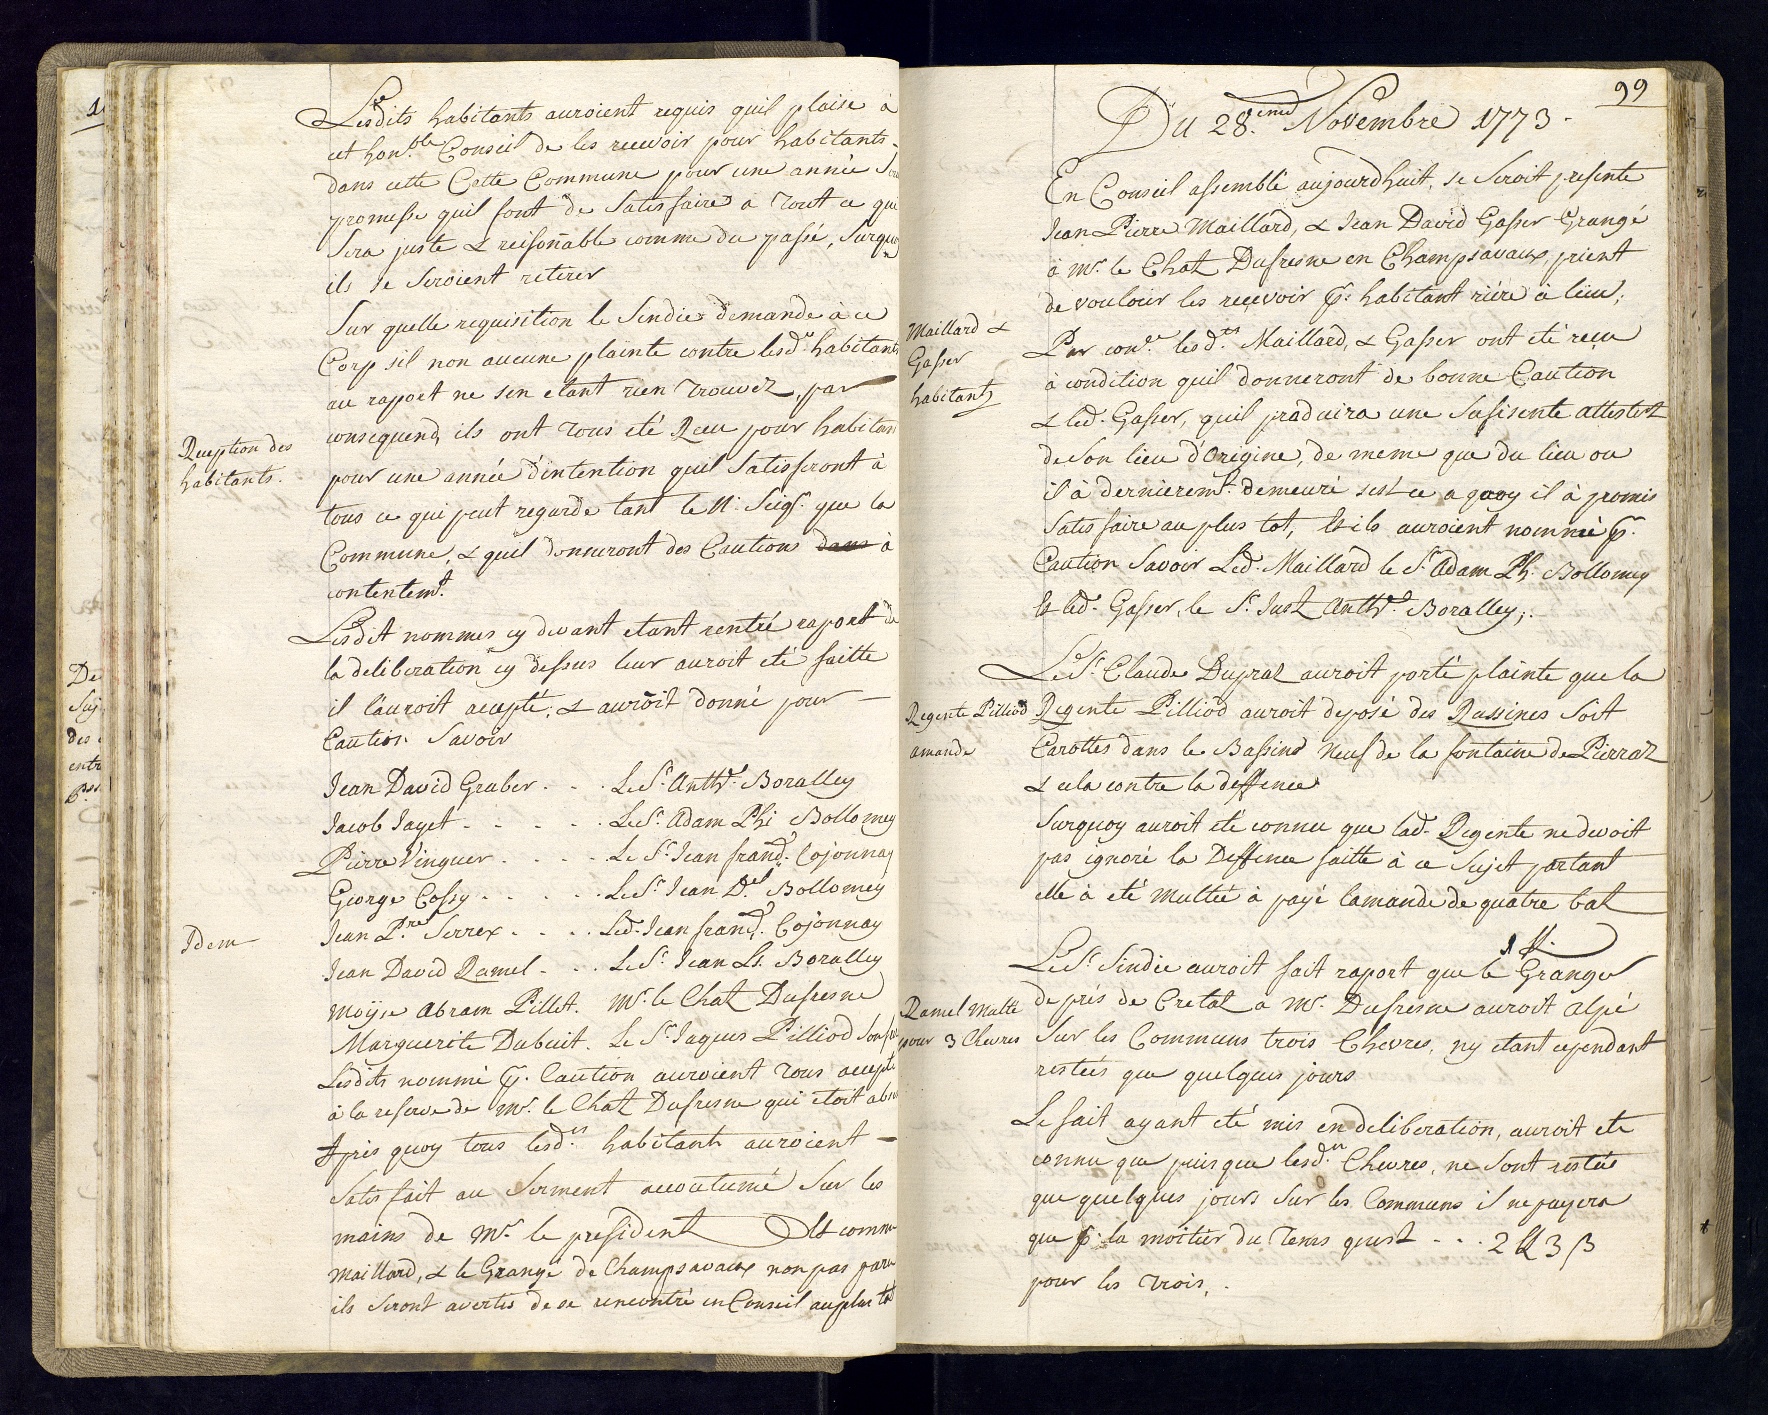 Lesdits habitants auroient requis quil plaise à
cet hon.ble Conseil de les recevoir pour habitants
dans cette Cette Commune pour une année
promesse quil font de Satisfaire a Tout ce qui
Sera juste & reisoñable comme du passé, Surquoy
ils se Seroient retirer
Sur quelle requisition le Sindic demande à ce
Corp sil non aucune plainte contre lesd.ts habitants
au raport ne sen etant rien Trouvez, par
consequend, ils ont Tous eté Recu pour habitan
Reception des
habitants.
pour une année d'intention quil Satisferont à
tous ce qui peut regarde tant le N. Seigr. que la
Commune, & quil donneront des Cautions dans à
contentemt.
Lesdit nommes cy devant etant rentré raport de
la deliberation cy dessus leur auroit eté faitte
il lauroit accepté, & auroit donné pour
Caution Savoir
Jean David Graber . . . Le Sr. Anthe. Boralley
Jacob Jayet . . . . . Le Sr. Adam Phi Bollomey
Pierre Vinguer . . . . Le Sr. Jean frand. Cojonnay
George Cossy . . . . . Le Sr. Jean D.el Bollomey
Idem
Jean P.re Serrex . . . . Led. Jean frand. Cojonnay
Jean David Ramel . . . Le Sr. Jean Ls. Boralley
Moÿse Abram Pillot. Mr. le Chat Dufresne
Marguerite Dubuit. Le Sr. Jaques Pilliod
Lesdits nommé p. Caution auroient Tous accepte
à la reserve de Mr. le Chat Dufresne qui etoit abs
Apris quoy tous lesd.ts habitants auroient
Satisfait au Serment accoutumé Sur les
mains de Mr. le president Et comme
Maillard, & le Grangé de Champsavaux non pas paru
ils Seront avertis de se rencontré en Conseil au plus tot
99
Du 28.eme Novembre 1773.
En Conseil assemblé aujourdhuit, se Seroit presente
Jean Pierre Maillard, & Jean David Gasser Grangé
à Mr. le Chat Dufresne en Champsavaux, prient
de vouloir les recevoir p: habitant riére ce lieu;
Maillard &
Gasser
habitants
Par con.e lesd.ts Maillard, & Gasser ont eté recu
à condition quil donneront de bonne Caution
& led. Gasser, quil praduira une Sufisente attestat
de Son lieu d'Origine, de meme que du lieu ou
il à dernièremt. demeuré sest ce a quoy il à promis
Satisfaire au plus tot, Et ils auroient nommé pr.
Caution Savoir Led. Maillard le Sr. Adam Ph. Bollomey
Et led. Gasser, le Sr. Just Anthe. Boralley;.
Le Sr. Claude Dupraz auroit porté plainte que la
Regente Pilliod
amande
Regente Pilliod auroit deposé des Rassines Soit
Carottes dans le Bassind Neuf de la fontaine de Pierraz
& cela contre la deffence
Surquoy auroit eté connu que lad. Regente ne devoit
pas ignoré la Deffence faitte à ce Sujet partant
elle à eté Multée à payé lamande de quatre bat
1 ff.
Le Sr. Sindic auroit fait raport que le Granger
Ramel Multé
pour 3 Chevres
de prés de Cretat a Mr. Dufresne auroit Alpé
Sur les Communs trois Chevres, ny etant cependant
restées que quelques jours
Le fait ayant eté mis en deliberation, auroit ete
connu que puisque lesd.tes Chevres, ne Sont restée
que quelques jours Sur les Communs il ne payera
que p. la moitier du Tems quest . . . 2 ff 3 ß
pour les Trois.